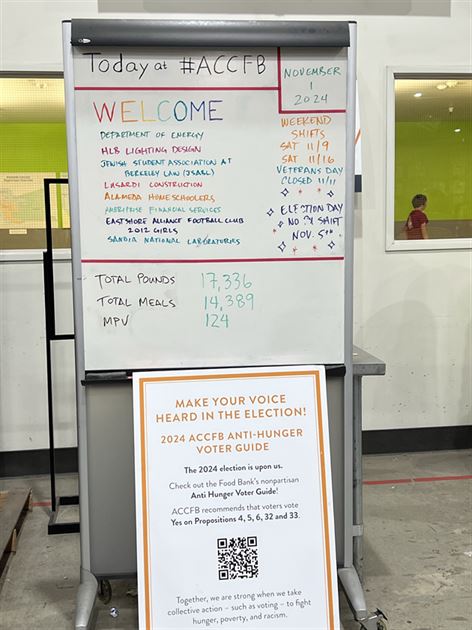 Today at #ACCFB
NOVEMBER
1
2024
WELCOME
DEPARTMENT OF ENERGY
HLB LIGHTING DESIGN
JEWISH STUDENT ASSOCIATION AT
BERKELEY LAW (JSABL)
LUSARDI CONSTRUCTION
ALAMEDA HOMESCHOOLERS
AMERIPRISE FINANCIAL SERVICES
EASTSHORE ALLIANCE FOOTBALL CLUB
2012 GIRLS
SANDIA NATIONAL LABORATORIES
WEEKEND
SHIFTS
SAT 11/9
SAT 11/16
VETERANS DAY
CLOSED 11/11
ELECTION DAY
NO SHIFT
NOV. 5TH
TOTAL POUNDS 17,336
TOTAL MEALS 14,389
MPV 124
MAKE YOUR VOICE
HEARD IN THE ELECTION!
2024 ACCFB ANTI-HUNGER
VOTER GUIDE
The 2024 election is upon us.
Check out the Food Bank's nonpartisan
Anti Hunger Voter Guide!
ACCFB recommends that voters vote
Yes on Propositions 4, 5, 6, 32 and 33.
Together, we are strong when we take
collective action – such as voting – to fight
hunger, poverty, and racism.